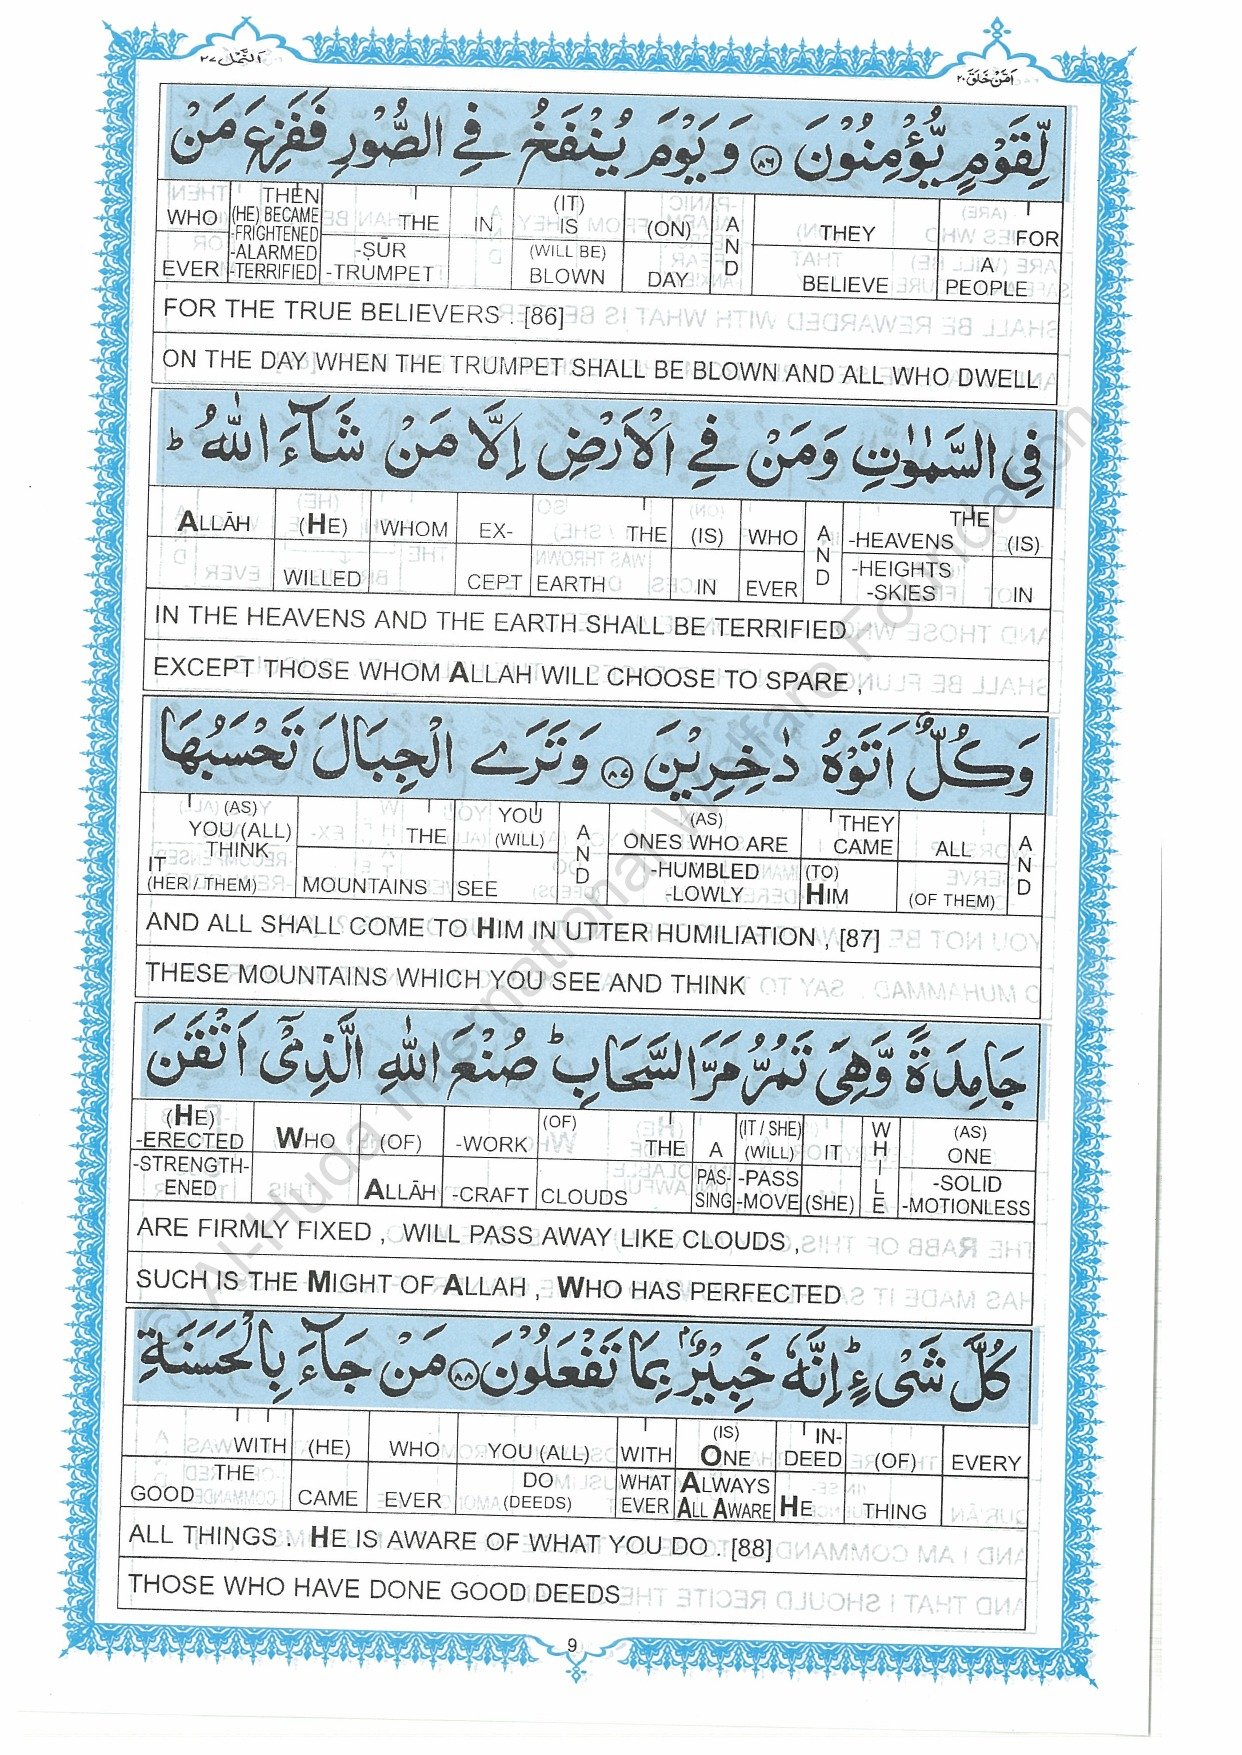 اَلنَّمْل ٢٧
اَمَّنْ خَلَقَ ٢٠
لِّقَوْمٍ يُّؤْمِنُوْنَ ﴿٨٦﴾ وَيَوْمَ يُنْفَخُ فِي الصُّوْرِ فَفَزِعَ مَنْ
WHO EVER | THEN (HE) BECAME -FRIGHTENED -ALARMED -TERRIFIED | THE -ṢŪR -TRUMPET | IN | (IT) IS (WILL BE) BLOWN | (ON) DAY | AND | THEY BELIEVE | FOR A PEOPLE
FOR THE TRUE BELIEVERS . [86]
ON THE DAY WHEN THE TRUMPET SHALL BE BLOWN AND ALL WHO DWELL
فِي السَّمٰوٰتِ وَمَنْ فِي الْاَرْضِ اِلَّا مَنْ شَآءَ اللّٰهُ ؕ
ALLĀH | (HE) WILLED | WHOM | EX- CEPT | THE EARTH | (IS) IN | WHO EVER | AND | THE -HEAVENS -HEIGHTS -SKIES | (IS) IN
IN THE HEAVENS AND THE EARTH SHALL BE TERRIFIED
EXCEPT THOSE WHOM ALLAH WILL CHOOSE TO SPARE ,
وَكُلٌّ اَتَوْهُ دٰخِرِيْنَ ﴿٨٧﴾ وَتَرَى الْجِبَالَ تَحْسَبُهَا
(AS) YOU (ALL) THINK IT (HER / THEM) | THE MOUNTAINS | YOU (WILL) SEE | AND | (AS) ONES WHO ARE -HUMBLED -LOWLY | THEY CAME (TO) HIM | ALL (OF THEM) | AND
AND ALL SHALL COME TO HIM IN UTTER HUMILIATION , [87]
THESE MOUNTAINS WHICH YOU SEE AND THINK
جَامِدَةً وَّهِيَ تَمُرُّ مَرَّ السَّحَابِ ؕ صُنْعَ اللّٰهِ الَّذِيْٓ اَتْقَنَ
(HE) -ERECTED -STRENGTH- ENED | WHO | (OF) ALLĀH | -WORK -CRAFT | (OF) THE CLOUDS | A PAS- SING | (IT / SHE) (WILL) -PASS -MOVE | IT (SHE) | WHILE | (AS) ONE -SOLID -MOTIONLESS
ARE FIRMLY FIXED , WILL PASS AWAY LIKE CLOUDS ,
SUCH IS THE MIGHT OF ALLAH , WHO HAS PERFECTED
كُلَّ شَيْءٍ ؕ اِنَّهٗ خَبِيْرٌۢ بِمَا تَفْعَلُوْنَ ﴿٨٨﴾ مَنْ جَآءَ بِالْحَسَنَةِ
WITH THE GOOD | (HE) CAME | WHO EVER | YOU (ALL) DO (DEEDS) | WITH WHAT EVER | (IS) ONE ALWAYS ALL AWARE | IN- DEED HE | (OF) THING | EVERY
ALL THINGS . HE IS AWARE OF WHAT YOU DO . [88]
THOSE WHO HAVE DONE GOOD DEEDS
9
© Al-Huda International Welfare Foundation